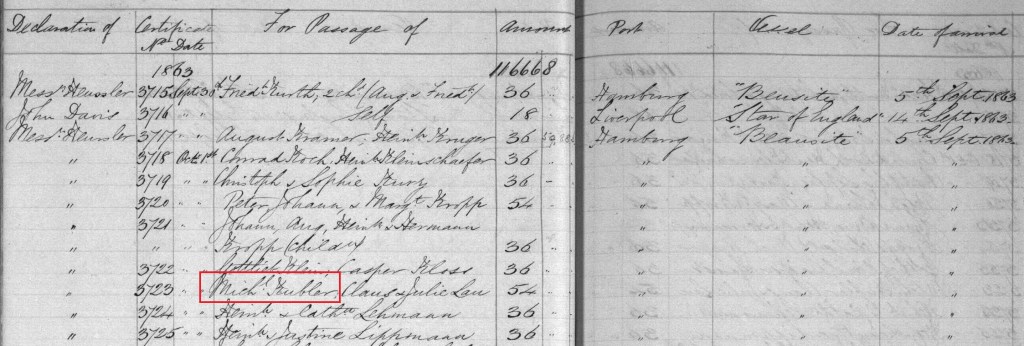 Declaration of Certificate For Passage of Amount Port Vessel Date of arrival
No Date
1863 116668
Messrs Heussler 3715 Sept 30th Fredk Kurth, 2 ch (Aug & Fredk) 36 Hamburg "Beausite" 5th Sept 1863
John Davis 3716 " " Self 18 Liverpool "Star of England" 14th Sept 1863
Messrs Heussler 3717 " " August Kramer, Heinh Kruger 36 Hamburg "Beausite" 5th Sept 1863
" 3718 Oct 1st Conrad Koch Heinh Kleinschaefer 36 " " "
" 3719 " " Christph & Sophie Kurz 36 " " "
" 3720 " " Peter Johann & Margt Kropp 54 " " "
" 3721 " " Johann, Aug, Heinh & Hermann
" " " Kropp Childn 36 " " "
" 3722 " " Gottlieb Klein, Casper Kloss 36 " " "
" 3723 " " Michl Kubler, Claus & Julie Lau 54 " " "
" 3724 " " Heinh & Cathn Lehmann 36 " " "
" 3725 " " Heinh & Justine Lippmann 36 " " "